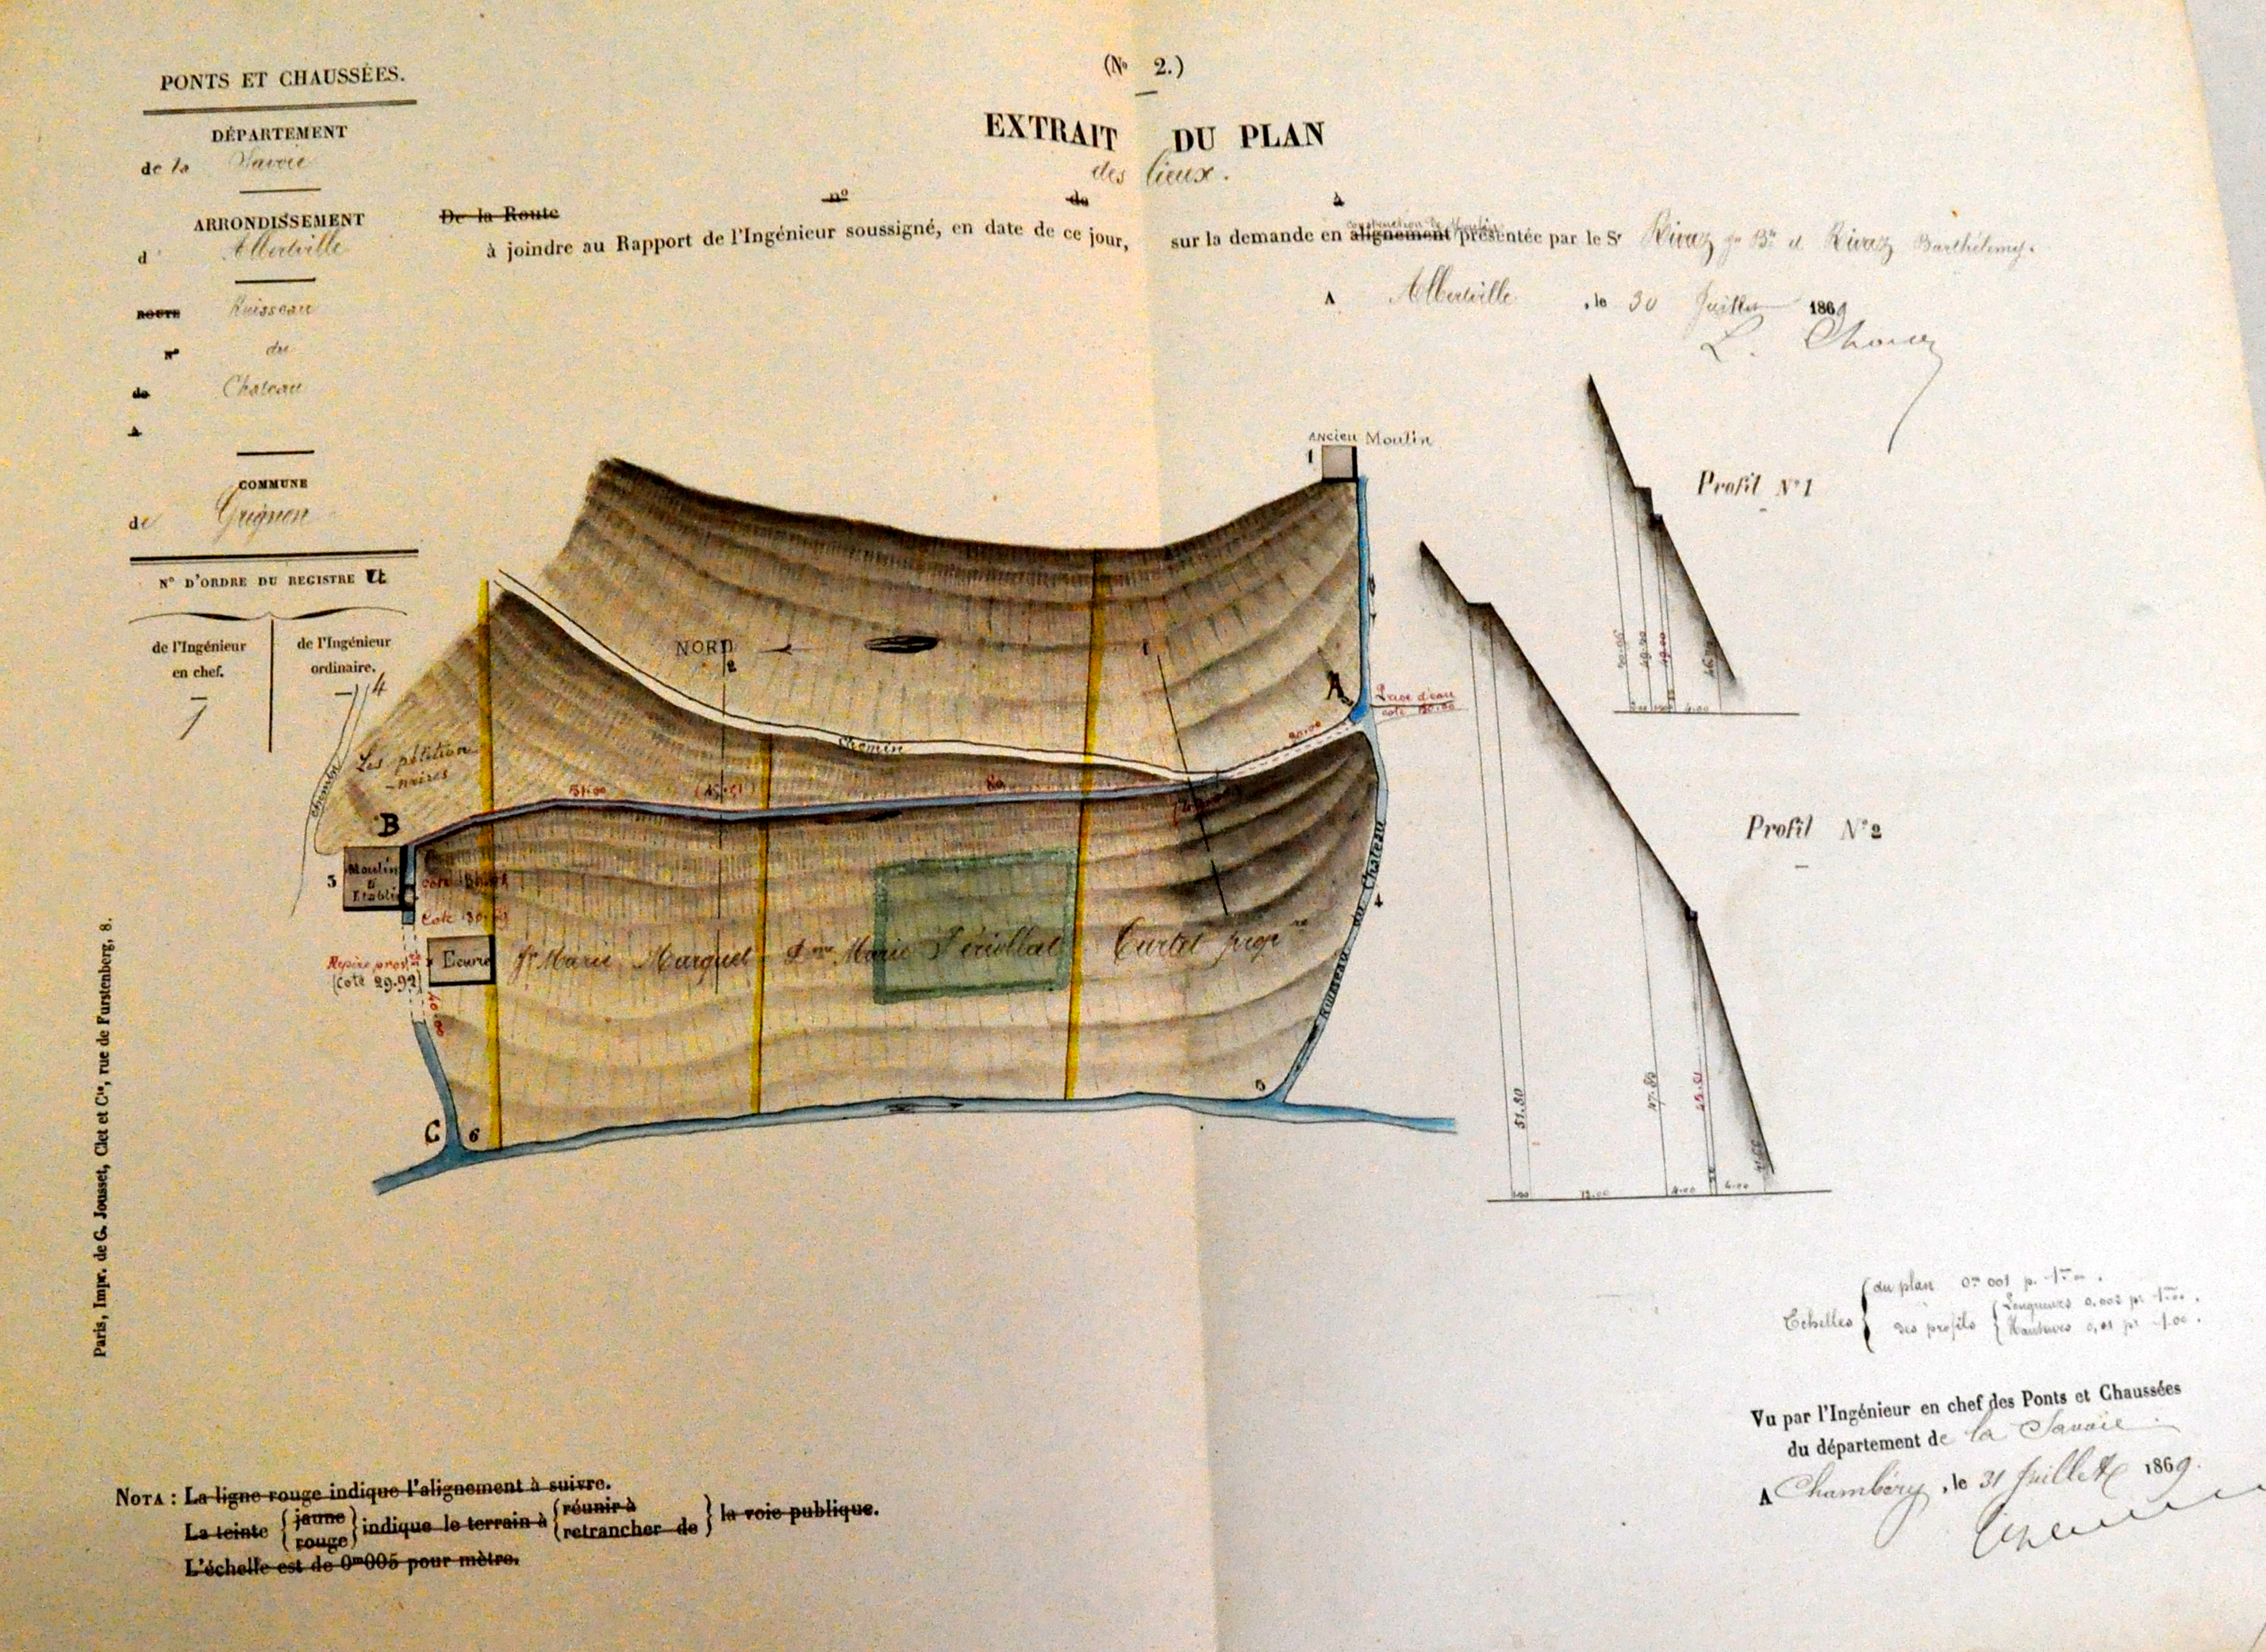 PONTS ET CHAUSSÉES.
DÉPARTEMENT
de la Savoie
ARRONDISSEMENT
d' Albertville
ROUTE Ruisseau
N° du
de Chateau
à
COMMUNE
de Grignon
N° D'ORDRE DU REGISTRE
de l'Ingénieur en chef.
de l'Ingénieur ordinaire.
14
(N° 2.)
EXTRAIT DU PLAN
des lieux.
De la Route n° de à
à joindre au Rapport de l'Ingénieur soussigné, en date de ce jour, sur la demande en alignement présentée par le Sr Rivaz fs Bte et Rivaz Barthélemy.
construction de Moulin
A Albertville, le 30 Juillet 1869
Ancien Moulin
1
Profil N° 1
NORD
2
1
A
Prise d'eau
cote 50.00
20.00
Chemin
Chemin
Les pétition
-naires
31.00
(45.51)
80
B
Moulin
à
Etablir
3
Ecurie
(cote 29.92)
Sr Marie Murguet
Dme Marie Périollat
Curtet propre
Ruisseau du Chateau
4
5
C
6
Profil N° 2
49.00
51.80
47.80
45.51
12.00
4.00
4.00
Echelles
du plan 0m 001 p. 1m00.
des profils
Longueurs 0,002 pr 1m00.
Hauteurs 0,01 pr 1.00.
Vu par l'Ingénieur en chef des Ponts et Chaussées
du département de la Savoie.
A Chambéry, le 31 Juillet 1869.
NOTA : La ligne rouge indique l'alignement à suivre.
La teinte { jaune rouge } indique le terrain à { réunir à retrancher de } la voie publique.
L'échelle est de 0m005 pour mètre.
Paris, Impr. de G. Jousset, Clet et Cie, rue de Furstenberg, 8.